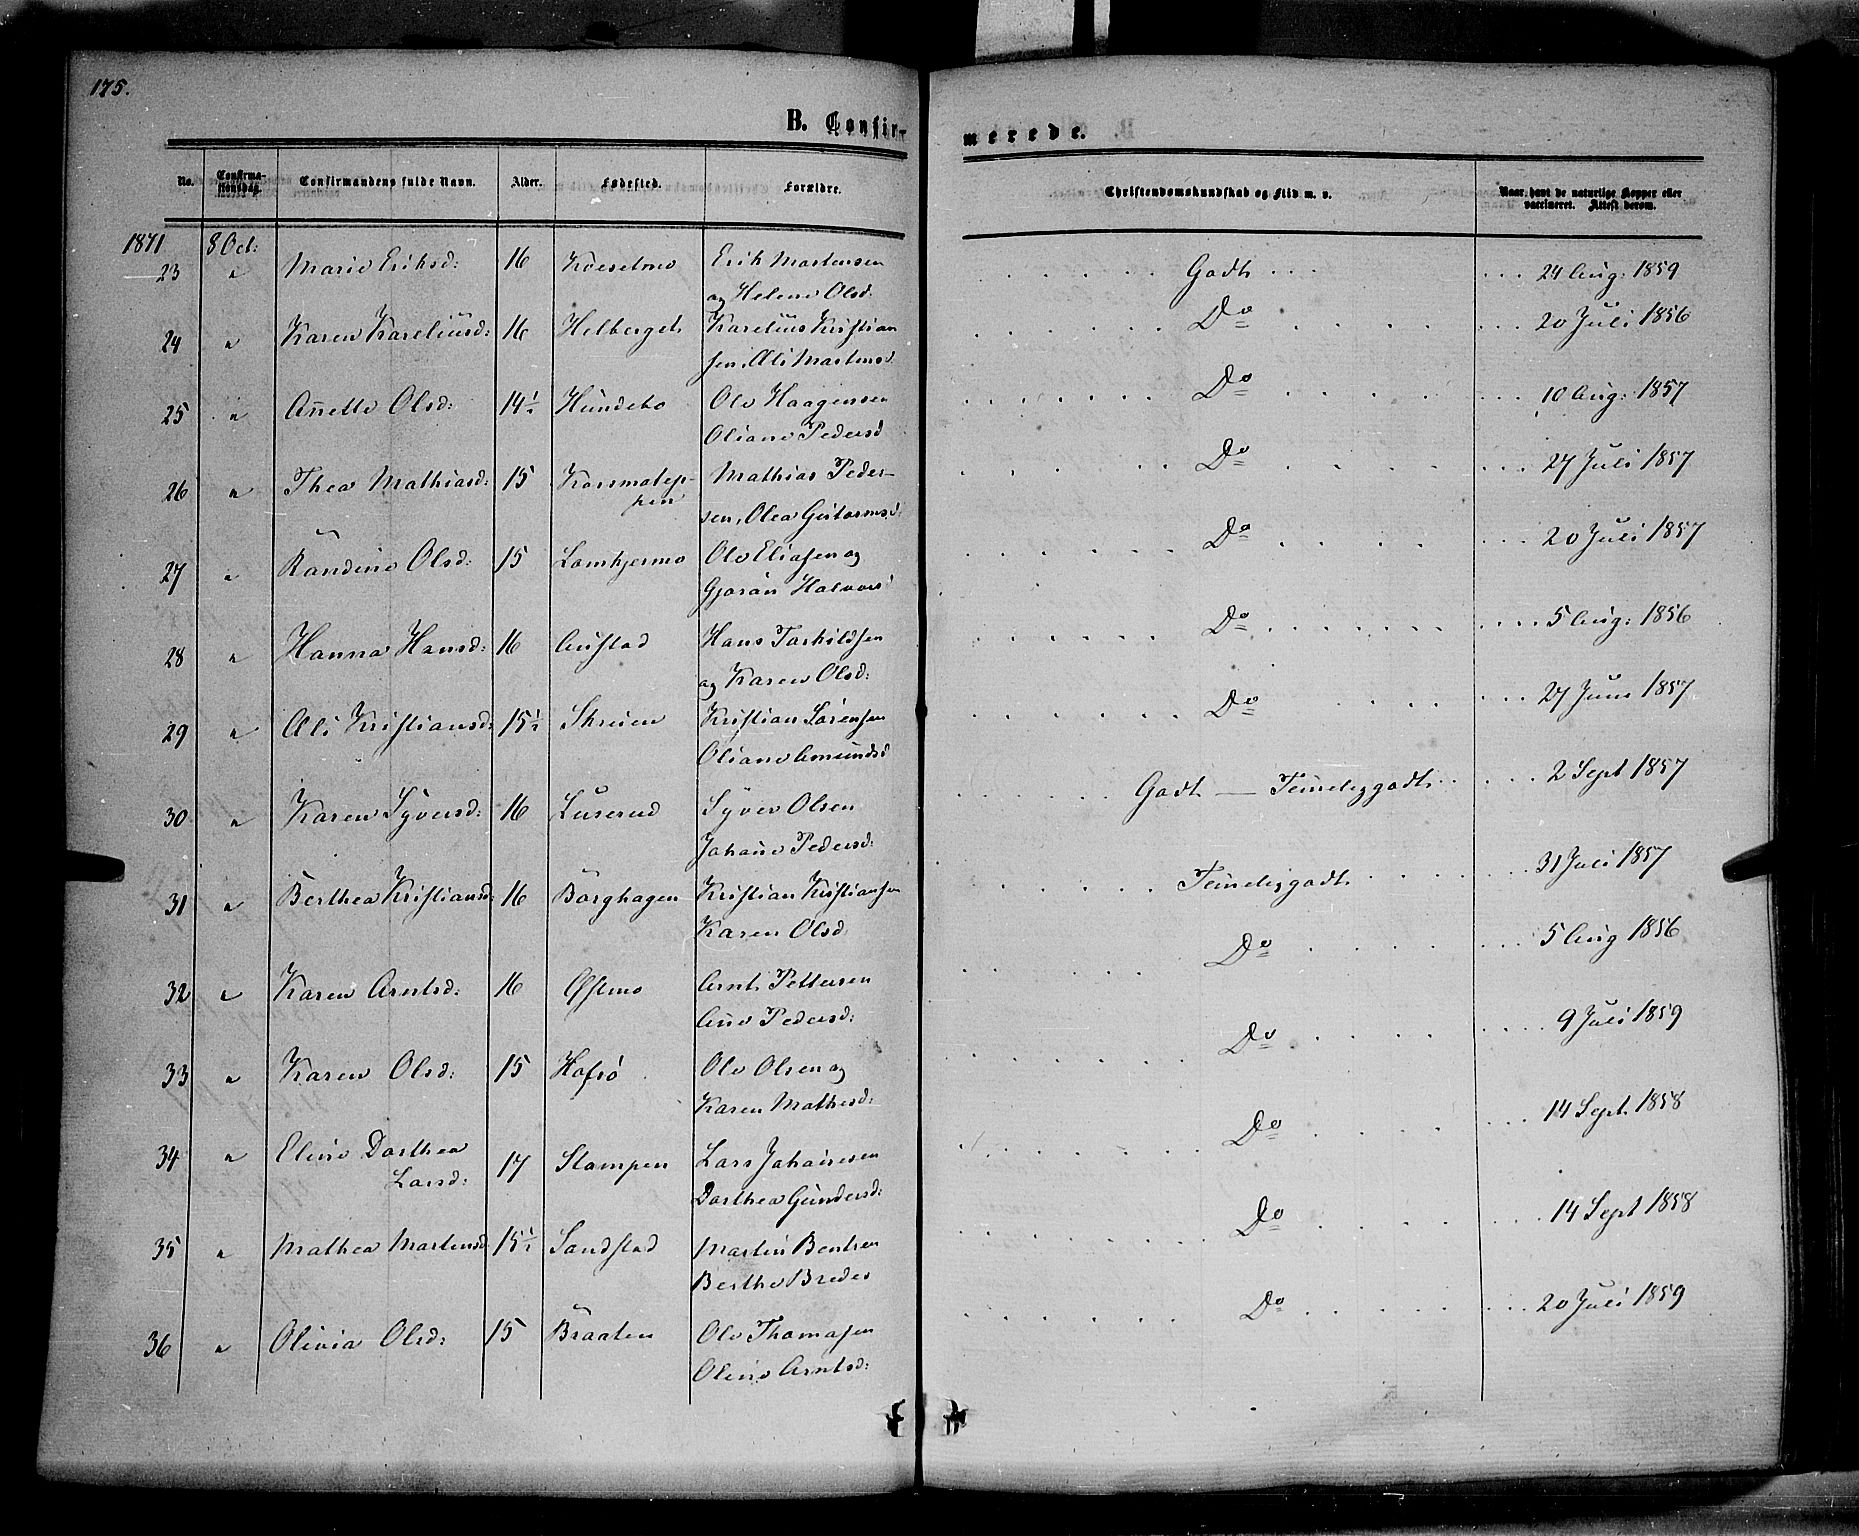 175.
B. Confir-
merede.
No.
Confirma-
tionsdag.
Confirmandens fulde Navn.
Alder.
Fødested.
Forældre.
Christendomskundskab og Flid m. v.
Naar havt de naturlige Kopper eller
vaccineret. Attest derom.
1871 8 Oct:
23 " Marie Eriksd: 16 Erik Martensen Godt 24 Aug: 1859
og Helene Olsd:
24 " Karen Kareliusd: 16 Helberget Karelius Kristian Do 20 Juli 1856
sen, Oli Martensd
25 " Anette Olsd: 14½ Hundebo Ole Haagensen Do 10 Aug: 1857
Oliane Pedersd
26 " Thea Mathiasd: 15 Mathias Peder- Do 27 Juli 1857
sen, Olea
27 " Randine Olsd: 15 Ole Eliasen og Do 20 Juli 1857
Gjøran Halvors
28 " Hanna Hansd: 16 Austad Hans Torkildsen Do 5 Aug: 1856
og Karen Olsd:
29 " Oli Kristiansd: 15½ Skruen Kristian Sørensen Do 27 Juni 1857
Oliane Amundsd
30 " Karen Syversd: 16 Luserud Syver Olsen Godt — Temeliggodt 2 Sept 1857
Johane Pedersd:
31 " Berthea Kristiansd: 16 Børghagen Kristian Kristiansen Temeliggodt 31 Juli 1857
Karen Olsd
32 " Karen Arntsd: 16 Østmo Arnt Pettersen Do 5 Aug 1856
Ane Pedersd:
33 " Karen Olsd: 15 Hofsø Ole Olsen og Do 9 Juli 1859
Karen Mathesd:
34 " Eline Dorthea 17 Stampen Lars Johannesen Do 14 Sept. 1858
Larsd:
Dorthea Gundersd:
35 " Mathea Martensd 15½ Sandstad Martin Bentsen Do 14 Sept 1858
Berthe Brede
36 " Olivia Olsd: 15 Braaten Ole Thomasen Do 20 Juli 1859
Oline Arntsd: